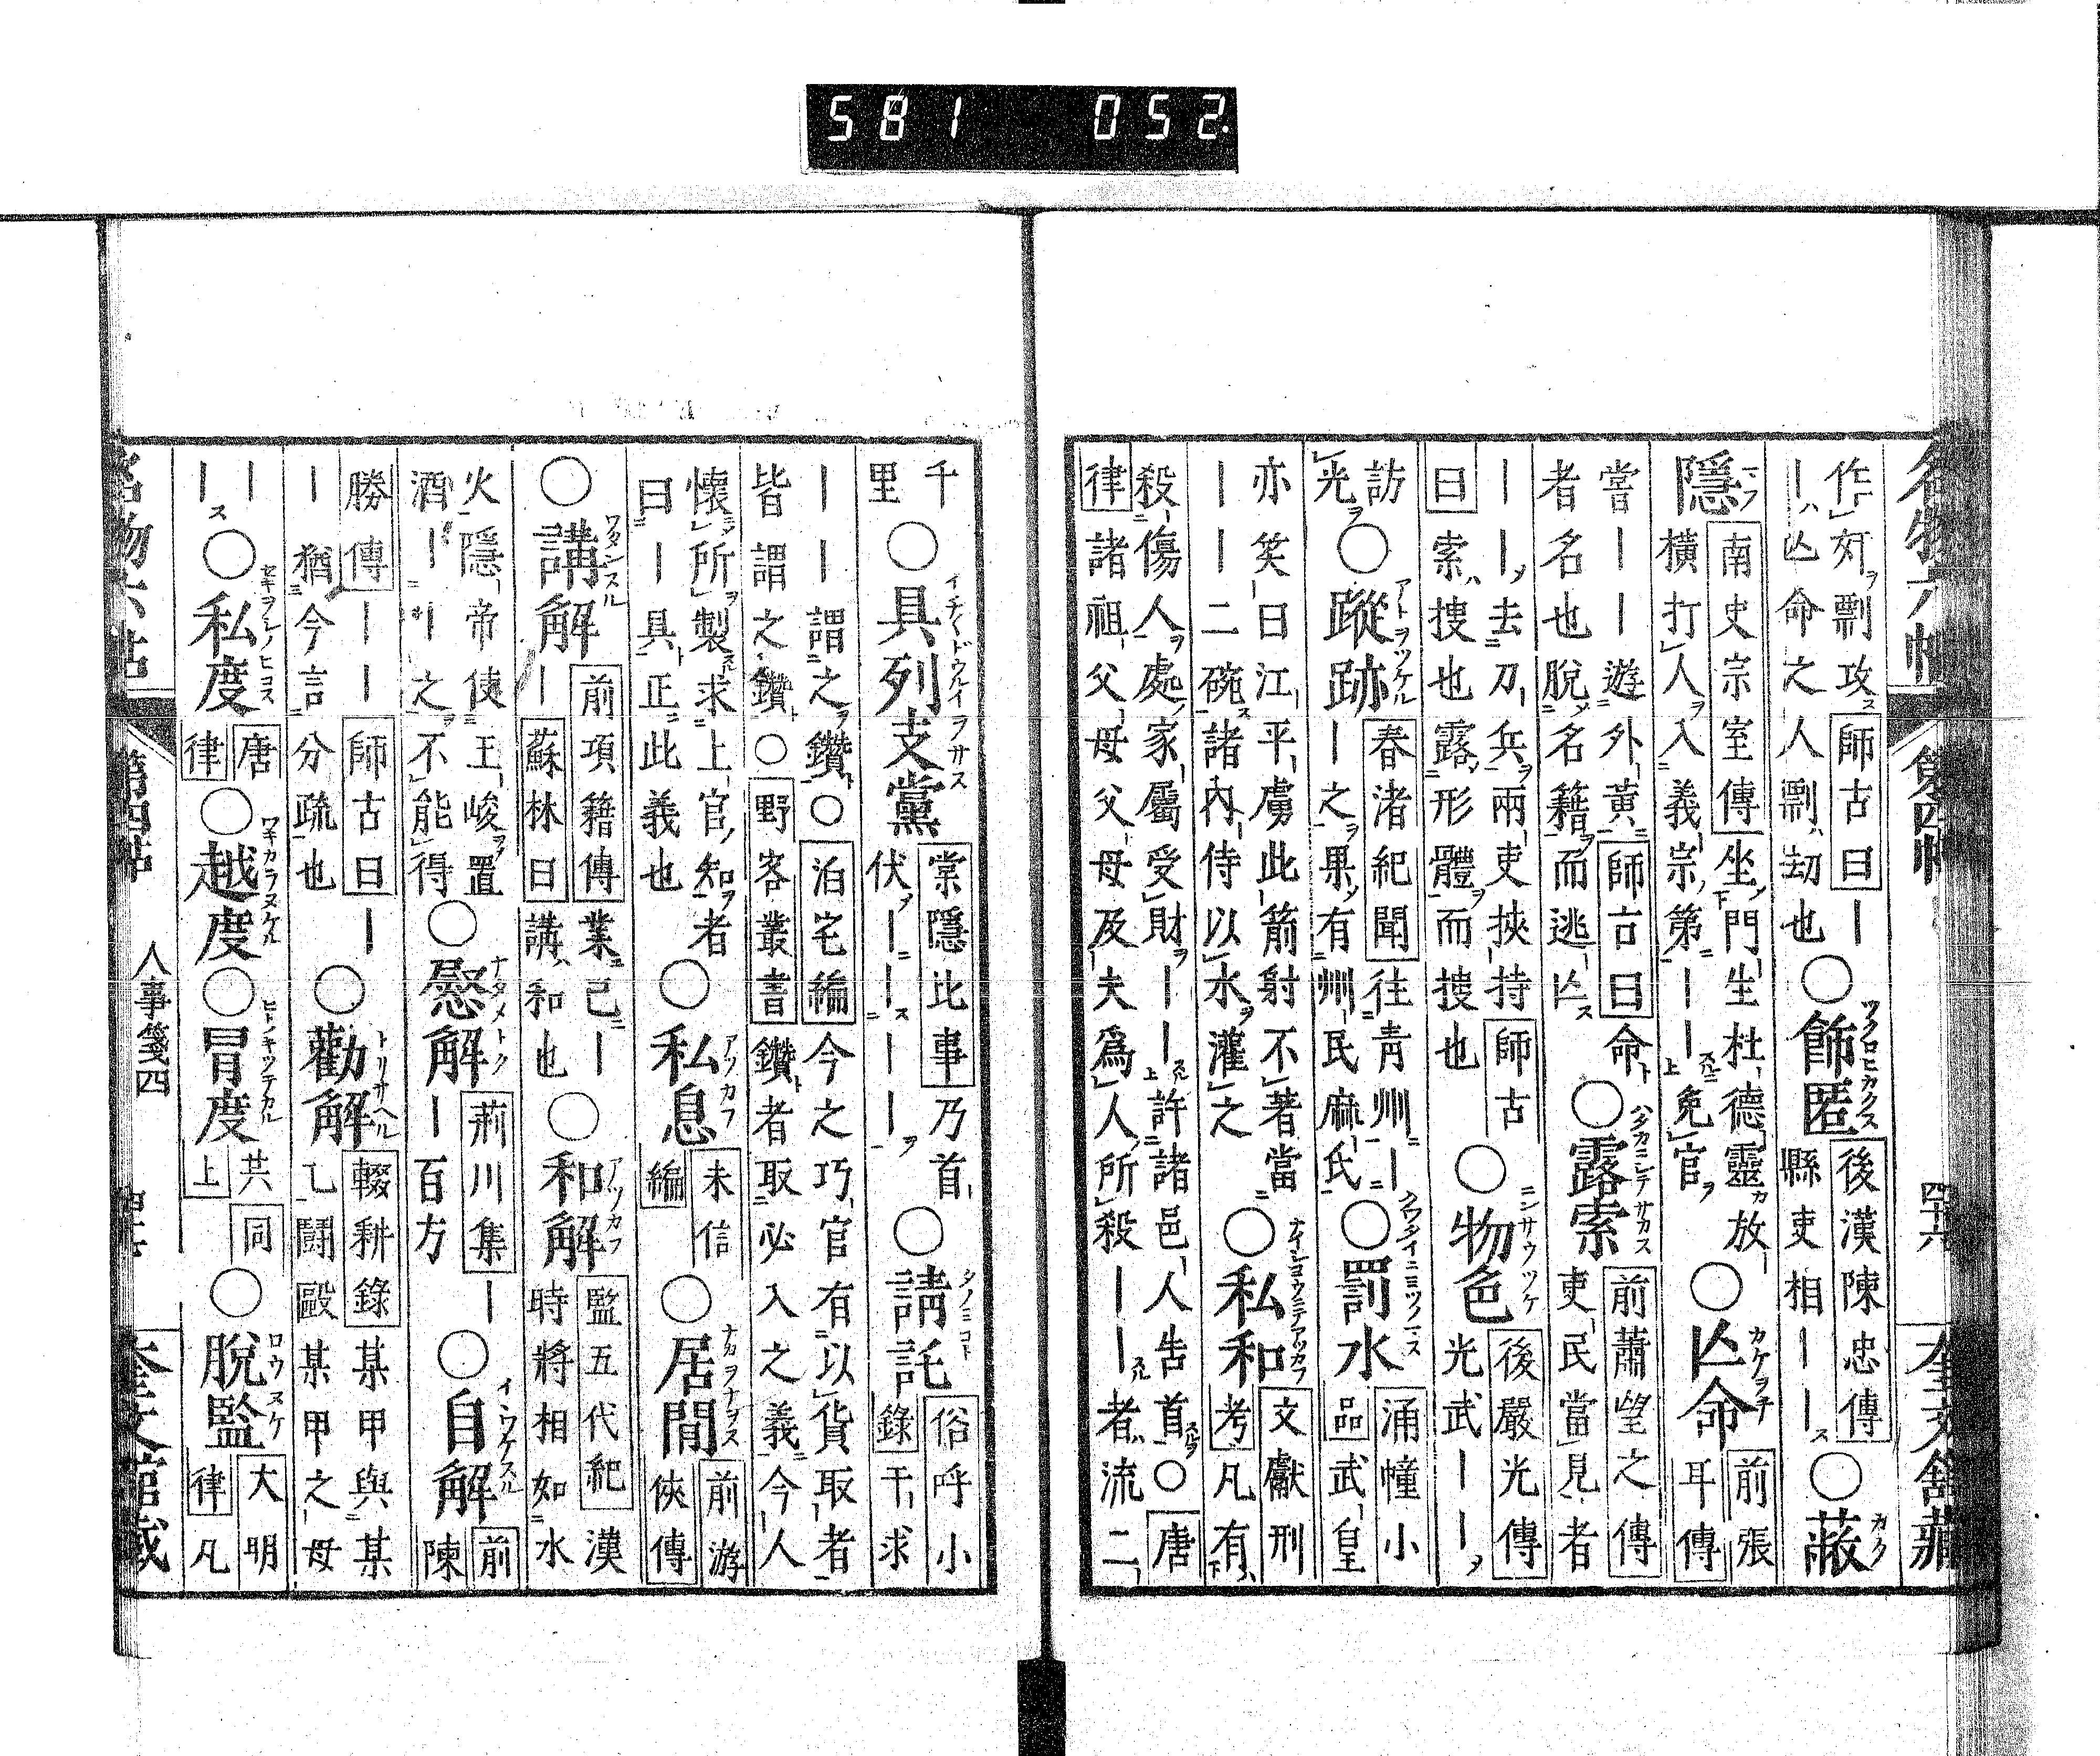 581 052
名物六帖 第四帖 四十六 奎文館藏
作奸剽攻師古曰｜
｜亾命之人剽劫也○飾匿後漢陳忠傳縣吏相｜｜○蔽
隱南史宗室傳坐門生杜德靈放
橫打人入義宗第｜｜免官○亾命前張耳傳
嘗｜｜遊外黃師古曰命
者名也脫名籍而逃亾○露索前蕭望之傳吏民當見者
｜｜去刀兵兩吏挾持師古
曰索捜也露形體而捜也○物色後嚴光傳光武｜｜
訪
光○蹤跡春渚紀聞往靑州｜
｜之果有州民麻氏○罰水涌幢小品武皇
亦笑曰江平虜此箭射不著當
｜｜二碗諸內侍以水灌之○私和文獻刑考凡有
殺傷人處家屬受財｜｜許諸邑人告首○唐
律諸祖父母父母及夫爲人所殺｜｜者流二
千
里○具列支黨棠隱比事乃首
伏｜｜｜｜○請託俗呼小錄干求
｜｜謂之鑽○泊宅編今之巧官有以貨取者
皆謂之鑽○野客叢書鑽者取必入之義今人
懷所製求上官知者
曰｜具正此義也○私息未信編○居閒前游俠傳
○講解前項籍傳業已｜
｜蘇林曰講和也○和解監五代紀漢時將相如水
火隱帝使王峻置
酒｜｜之不能得○慰解荊川集｜
｜百方○自解前陳
勝傳｜｜師古曰｜
｜猶今言分疏也○勸解輟耕錄某甲與某
乙鬪毆某甲之母
｜
｜○私度唐律○越度○冒度共同上○脫監大明律凡
名物六帖 第四帖 人事箋四 奎文館藏